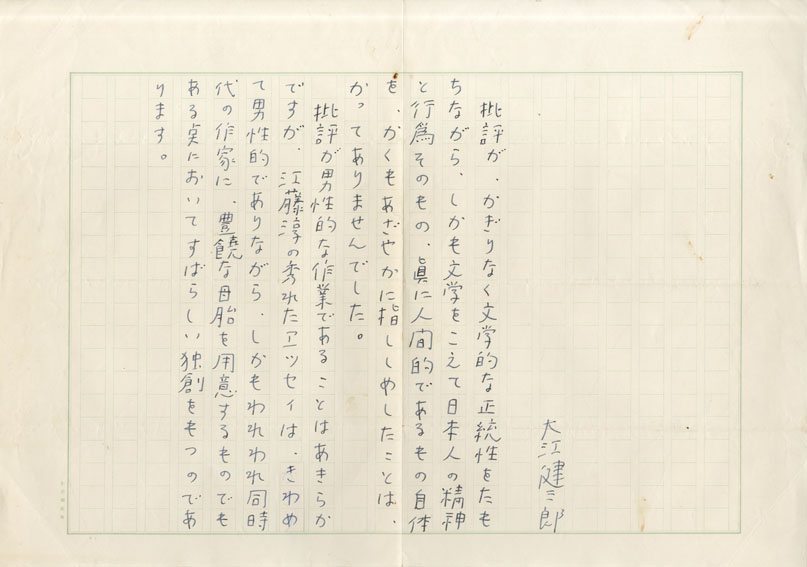 大江健三郎
批評が、かぎりなく文学的な正統性をたも
ちながら、しかも文学をこえて日本人の精神
と行爲そのもの、眞に人间的であるもの自体
を、かくもあざやかに指ししめしたことは、
かつてありませんでした。
批評が男性的な作業であることはあきらか
ですが、江藤淳の秀れたエッセイは、きわめ
て男性的でありながら、しかもわれわれ同時
代の作家に、豊饒な母胎を用意するものでも
ある点においてすばらしい独創をもつのであ
ります。